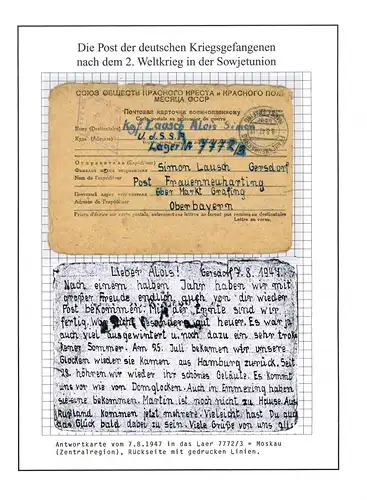 Die Post der deutschen Kriegsgefangenen
nach dem 2. Weltkrieg in der Sowjetunion
СОЮЗ ОБЩЕСТВ КРАСНОГО КРЕСТА и КРАСНОГО ПОЛУ-
МЕСЯЦА СССР
Почтовая карточка военнопленному
Carte postale au prisonnier de guerre
Кому (Destinataire) Kgf. Lausch Alois Simon
Куда (Adresse) U.d.S.S.R
Lager Nr. 7772/3
Отправитель (Expéditeur)
Simon Lausch Gersdorf
Nom de l'expéditeur
Post Frauenneuharting
Почтовый адрес отправителя über Markt Grafing
Adresse de l'expéditeur
Oberbayern
Prière d'écrire sur carte postale, autrement
Lettre au verso.
Lieber Alois! Gersdorf 7.8.1947.
Nach einem halben Jahr haben wir mit
großer Freude endlich auch von dir wieder
Post bekommen. Mit der Ernte sind wir
fertig, war nicht besonders gut heuer. Es war ja
auch viel ausgewintert u. noch dazu ein sehr trok
kener Sommer. Am 25. Juli bekamen wir unsere
Glocken wieder sie kamen aus Hamburg zurück. Seit
28. hören wir wieder ihr schönes Geläute. Es kommt
uns vor wie von Domglocken. Auch in Emmering haben
sie eine bekommen. Martin ist noch nicht zu Hause. Aus
Rußland kommen jetzt mehrere. Vieleicht hast Du auch
das Glück bald dabei zu sein. Viele Grüße von uns
Antwortkarte vom 7.8.1947 in das Laer 7772/3 = Moskau
(Zentralregion), Rückseite mit gedrucken Linien.